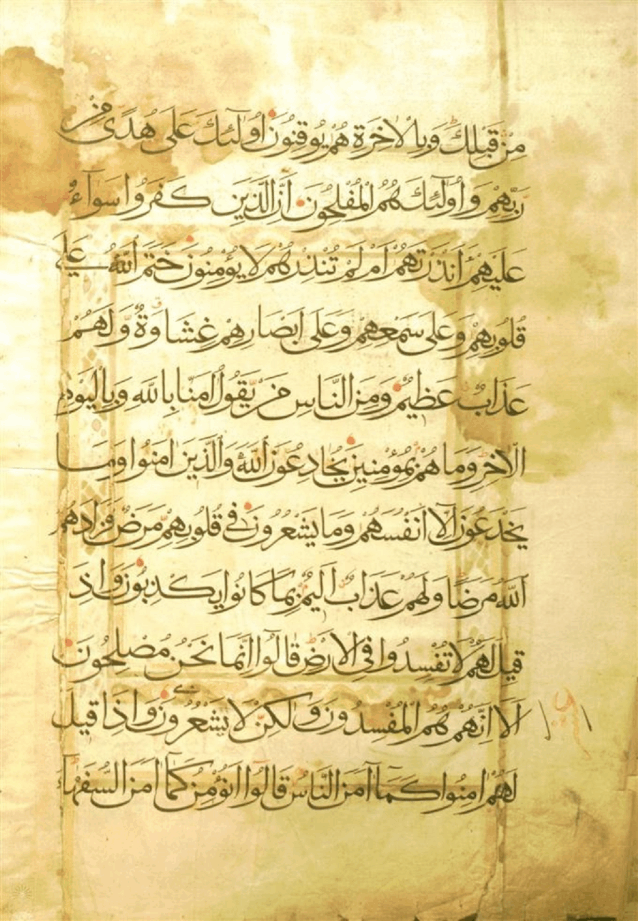 مِنْ قَبْلِكَ وَبِالْاخِرَةِ هُمْ يُوقِنُونَ اُولٰٓئِكَ عَلٰى هُدًى مِنْ
رَبِّهِمْ وَاُولٰٓئِكَ هُمُ الْمُفْلِحُونَ اِنَّ الَّذِينَ كَفَرُوا سَوَآءٌ
عَلَيْهِمْ ءَاَنْذَرْتَهُمْ اَمْ لَمْ تُنْذِرْهُمْ لَا يُؤْمِنُونَ خَتَمَ اللّٰهُ عَلٰى
قُلُوبِهِمْ وَعَلٰى سَمْعِهِمْ وَعَلٰى اَبْصَارِهِمْ غِشَاوَةٌ وَلَهُمْ
عَذَابٌ عَظِيمٌ وَمِنَ النَّاسِ مَنْ يَقُولُ اٰمَنَّا بِاللّٰهِ وَبِالْيَوْمِ
الْاٰخِرِ وَمَا هُمْ بِمُؤْمِنِينَ يُخَادِعُونَ اللّٰهَ وَالَّذِينَ اٰمَنُوا وَمَا
يَخْدَعُونَ اِلَّا اَنْفُسَهُمْ وَمَا يَشْعُرُونَ فِى قُلُوبِهِمْ مَرَضٌ فَزَادَهُمُ
اللّٰهُ مَرَضًا وَلَهُمْ عَذَابٌ اَلِيمٌ بِمَا كَانُوا يَكْذِبُونَ وَاِذَا
قِيلَ لَهُمْ لَا تُفْسِدُوا فِى الْاَرْضِ قَالُوا اِنَّمَا نَحْنُ مُصْلِحُونَ
اَلَا اِنَّهُمْ هُمُ الْمُفْسِدُونَ وَلٰكِنْ لَا يَشْعُرُونَ وَاِذَا قِيلَ
لَهُمْ اٰمِنُوا كَمَآ اٰمَنَ النَّاسُ قَالُوا اَنُؤْمِنُ كَمَآ اٰمَنَ السُّفَهَآءُ